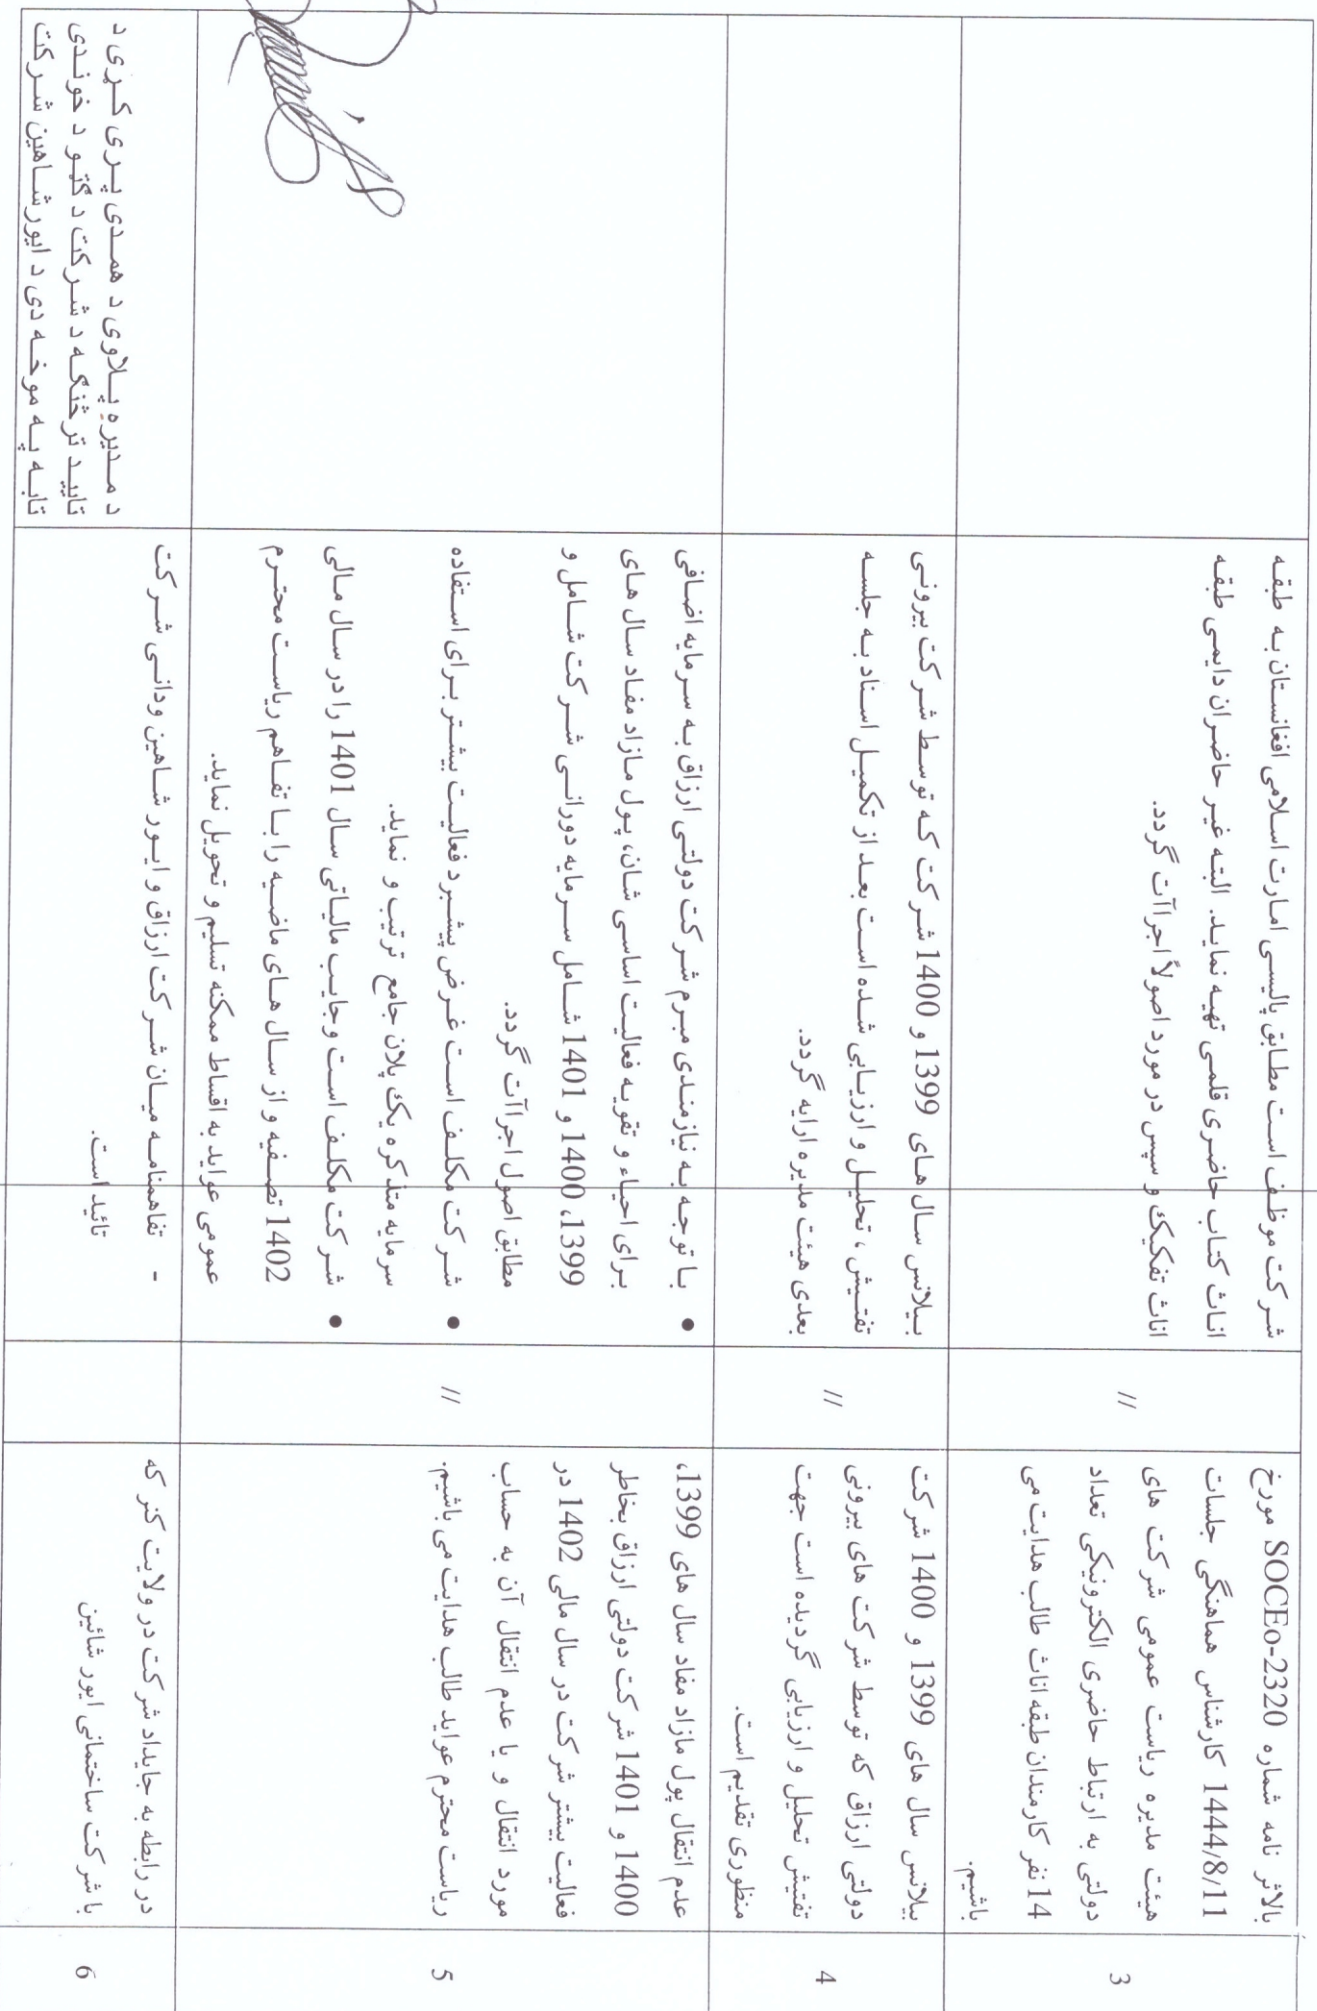 3
بالاثر نامه شماره SOCEo-2320 مورخ
1444/8/11 کارشناس هماهنگی جلسات
هیئت مدیره ریاست عمومی شرکت های
دولتی به ارتباط حاضری الکترونیکی تعداد
14 نفر کارمندان طبقه اناث طالب هدایت می
باشیم.
//
شرکت موظف است مطابق پالیسی امارت اسلامی افغانستان به طبقه
اناث کتاب حاضری قلمی تهیه نماید. البته غیر حاضران دایمی طبقه
اناث تفکیک و سپس در مورد اصولاً اجراآت گردد.
4
بیلانس سال های 1399 و 1400 شرکت
دولتی ارزاق که توسط شرکت های بیرونی
تفتیش تحلیل و ارزیابی گردیده است جهت
منظوری تقدیم است.
//
بیلانس سال های 1399 و 1400 شرکت که توسط شرکت بیرونی
تفتیش، تحلیل و ارزیابی شده است بعد از تکمیل اسناد به جلسه
بعدی هیئت مدیره ارایه گردد.
5
عدم انتقال پول مازاد مفاد سال های 1399،
1400 و 1401 شرکت دولتی ارزاق بخاطر
فعالیت بیشتر شرکت در سال مالی 1402 در
مورد انتقال و یا عدم انتقال آن به حساب
ریاست محترم عواید طالب هدایت می باشیم.
//
• با توجه به نیازمندی مبرم شرکت دولتی ارزاق به سرمایه اضافی
برای احیاء و تقویه فعالیت اساسی شان، پول مازاد مفاد سال های
1399، 1400 و 1401 شامل سرمایه دورانی شرکت شامل و
مطابق اصول اجراآت گردد.
• شرکت مکلف است غرض پیشبرد فعالیت بیشتر برای استفاده
سرمایه متذکره یک پلان جامع ترتیب و نماید.
• شرکت مکلف است وجایب مالیاتی سال 1401 را در سال مالی
1402 تصفیه و از سال های ماضیه را با تفاهم ریاست محترم
عمومی عواید به اقساط ممکنه تسلیم و تحویل نماید.
6
در رابطه به جایداد شرکت در ولایت کنر که
با شرکت ساختمانی ایور شائین
- تفاهمنامه میان شرکت ارزاق و ایور شاهین ودانی شرکت
تائید است.
د مدیره پلاوی د همدی پری کړی د
تایید ترڅنګه د شرکت د ګټو د خوندی
تابه په موخه دی د ایور شاهین شرکت